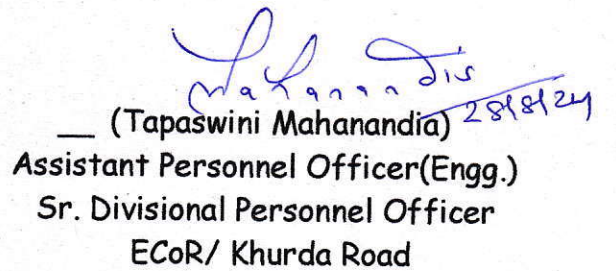 Mahanandia
28/8/24
__ (Tapaswini Mahanandia)
Assistant Personnel Officer(Engg.)
Sr. Divisional Personnel Officer
ECoR/ Khurda Road